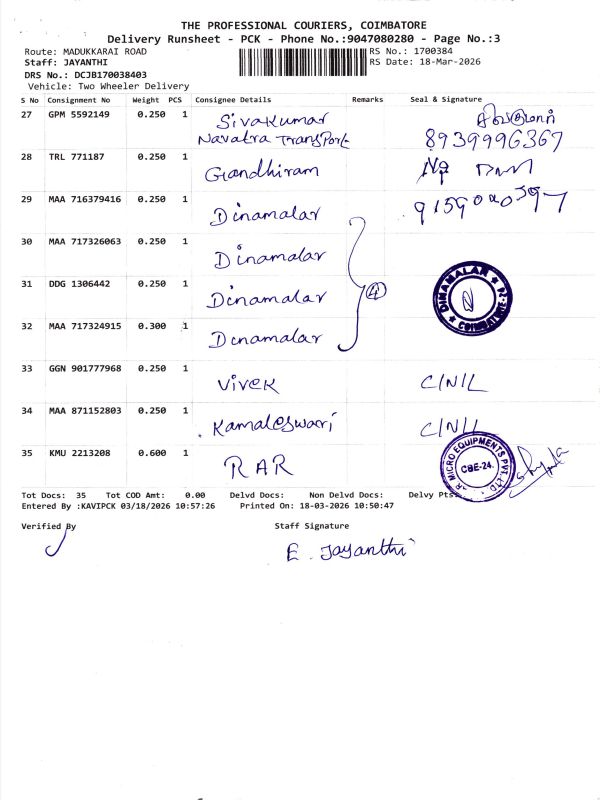 THE PROFESSIONAL COURIERS, COIMBATORE
Delivery Runsheet - PCK - Phone No.:9047080280 - Page No.:3
Route: MADUKKARAI ROAD
RS No.: 1700384
Staff: JAYANTHI
RS Date: 18-Mar-2026
DRS No.: DCJB170038403
Vehicle: Two Wheeler Delivery
S No Consignment No Weight PCS Consignee Details Remarks Seal & Signature
27 GPM 5592149 0.250 1 Sivakumar சிவகுமார்
Navatra Transport 8939996367
28 TRL 771187 0.250 1 Gandhiram
29 MAA 716379416 0.250 1 Dinamalar
30 MAA 717326063 0.250 1 Dinamalar
31 DDG 1306442 0.250 1 Dinamalar 4 DINAMALAR
32 MAA 717324915 0.300 1 Dinamalar
33 GGN 901777968 0.250 1 Vivek C/N/L
34 MAA 871152803 0.250 1 Kamaleswari C/N/L
35 KMU 2213208 0.600 1 RAR MICRO EQUIPMENTS PVT. LTD CBE-24.
Tot Docs: 35 Tot COD Amt: 0.00 Delvd Docs: Non Delvd Docs: Delvy Pts
Entered By :KAVIPCK 03/18/2026 10:57:26 Printed On: 18-03-2026 10:50:47
Verified By Staff Signature
E. Jayanthi